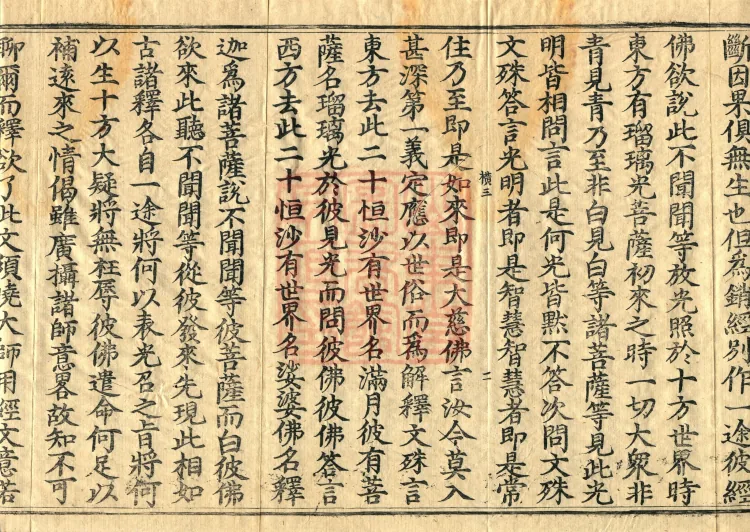 斷因果俱無生也但爲銷經別作一途彼經
佛欲說此不聞聞等放光照於十方世界時
東方有瑠璃光菩薩初來之時一切大衆非
青見青乃至非白見白等諸菩薩等見此光
明皆相問言此是何光皆默不答次問文殊
文殊答言光明者即是智慧智慧者即是常
橫三
二
住乃至即是如來即是大慈佛言汝今莫入
甚深第一義定應以世俗而爲解釋文殊言
東方去此二十恒沙有世界名滿月彼有菩
薩名瑠璃光於彼見光而問彼佛彼佛答言
西方去此二十恒沙有世界名娑婆佛名釋
迦爲諸菩薩說不聞聞等彼菩薩而白彼佛
欲來此聽不聞聞等從彼發來先現此相如
古諸釋各自一途將何以表光召之旨將何
以生十方大疑將無枉辱彼佛遣命何足以
補遠來之情偈雖廣攝諸師意畧故知不可
聊爾而釋欲了此文須曉大師用經文意若